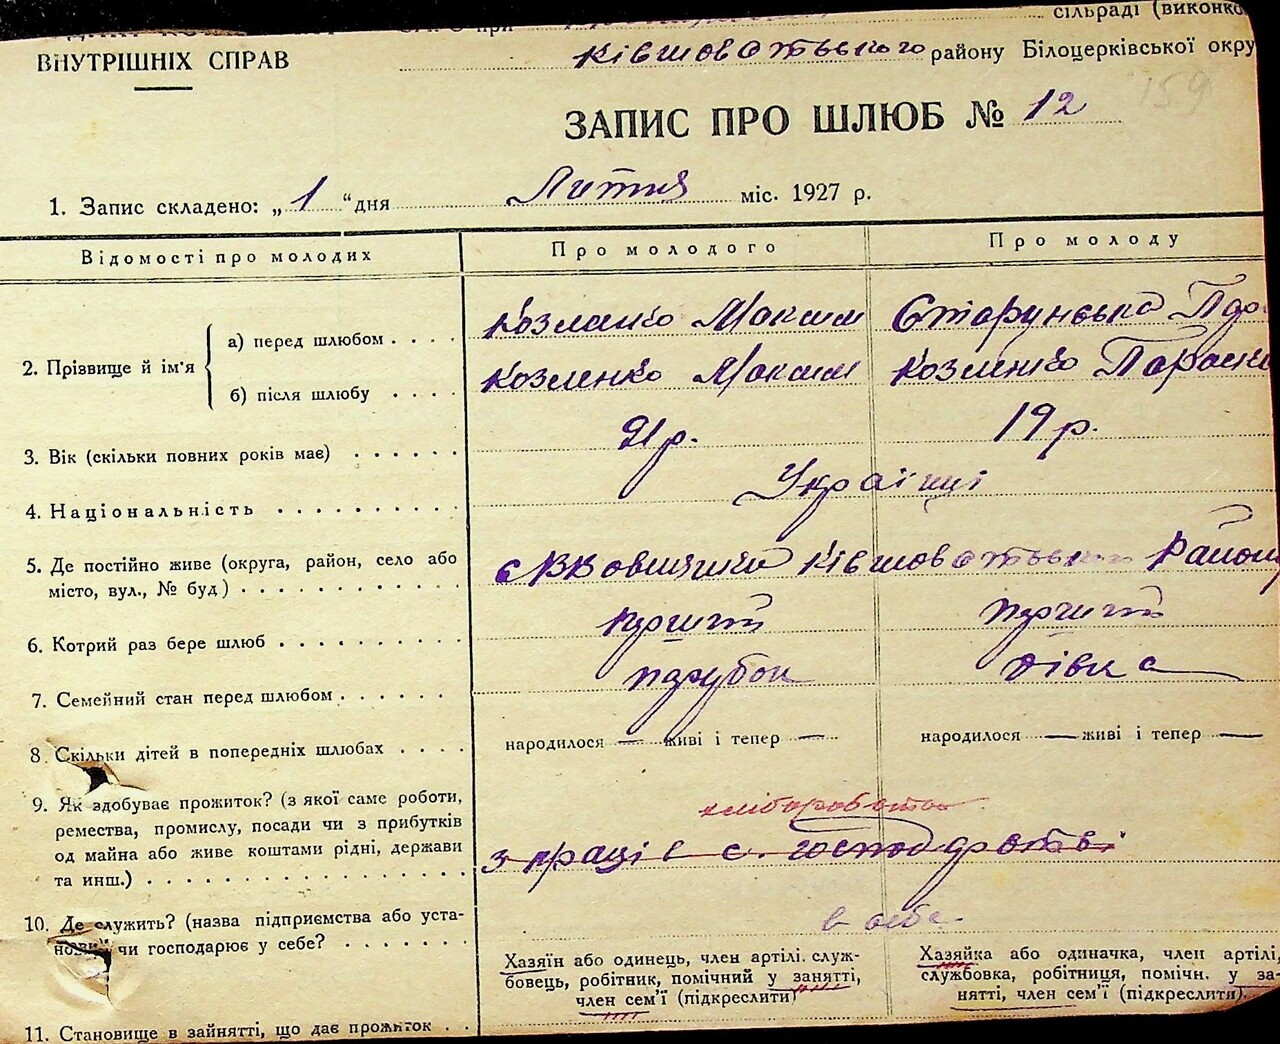 при сільраді (виконко
ВНУТРІШНІХ СПРАВ Ківшоватського району Білоцерківської окру
159
ЗАПИС ПРО ШЛЮБ № 12
1. Запис складено: „1“ дня Лютня міс. 1927 р.
Відомості про молодих Про молодого Про молоду
2. Прізвище й ім'я
а) перед шлюбом Козленко Максим Старунська Пар
б) після шлюбу Козленко Максим Козленко Параск
3. Вік (скільки повних років має) 21 р. 19 р.
4. Національність Українці
5. Де постійно живе (округа, район, село або Ківшоватського Району
місто, вул., № буд)
6. Котрий раз бере шлюб перший перший
7. Семейний стан перед шлюбом парубок дівка
8 Скільки дітей в попередніх шлюбах народилося — живі і тепер — народилося — живі і тепер —
9. Як здобуває прожиток? (з якої саме роботи, хліборобство
ремества, промислу, посади чи з прибутків
од майна або живе коштами рідні, держави з праці в с. господарстві
та инш.)
10. Де служить? (назва підприємства або уста- в себе
нови) чи господарює у себе?
Хазяїн або одинець, член артілі. служ-
бовець, робітник, помічний у занятті,
член сем'ї (підкреслити)
Хазяйка або одиначка, член артілі,
службовка, робітниця, помічн. у за-
нятті, член сем'ї (підкреслити).
11. Становище в зайнятті, що дає прожиток